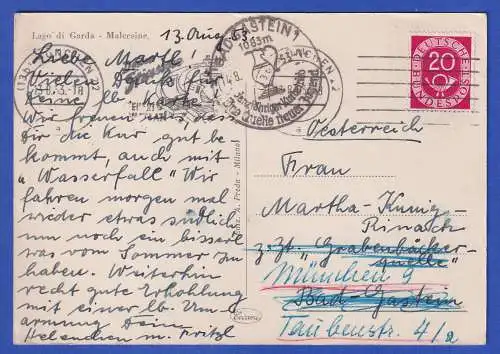 Lago di Garda - Malcesine.
13. Aug 53
Liebe Martl
Vielen Dank für
Deine lb. Karte
Wir freuen uns, dass
die Kur gut be
kommt, auch mit
"Wasserfall" Wir
fahren morgen mal
wieder etwas südlich
um noch ein bisserl
was vom Sommer zu
haben. Weiterhin
recht gute Erhohlung
mit einer lb. Um
armung Deine
Helenchen m. Fritzl
BADGASTEIN 1
1083m
MÜNCHEN
DEUTSCHE
BUNDESPOST
20
Oesterreich
Frau
Martha Kunig-
Rinach
z.Zt. "Grabenbäcker-
quelle"
München 9
Bad-Gastein
Taubenstr. 4/2